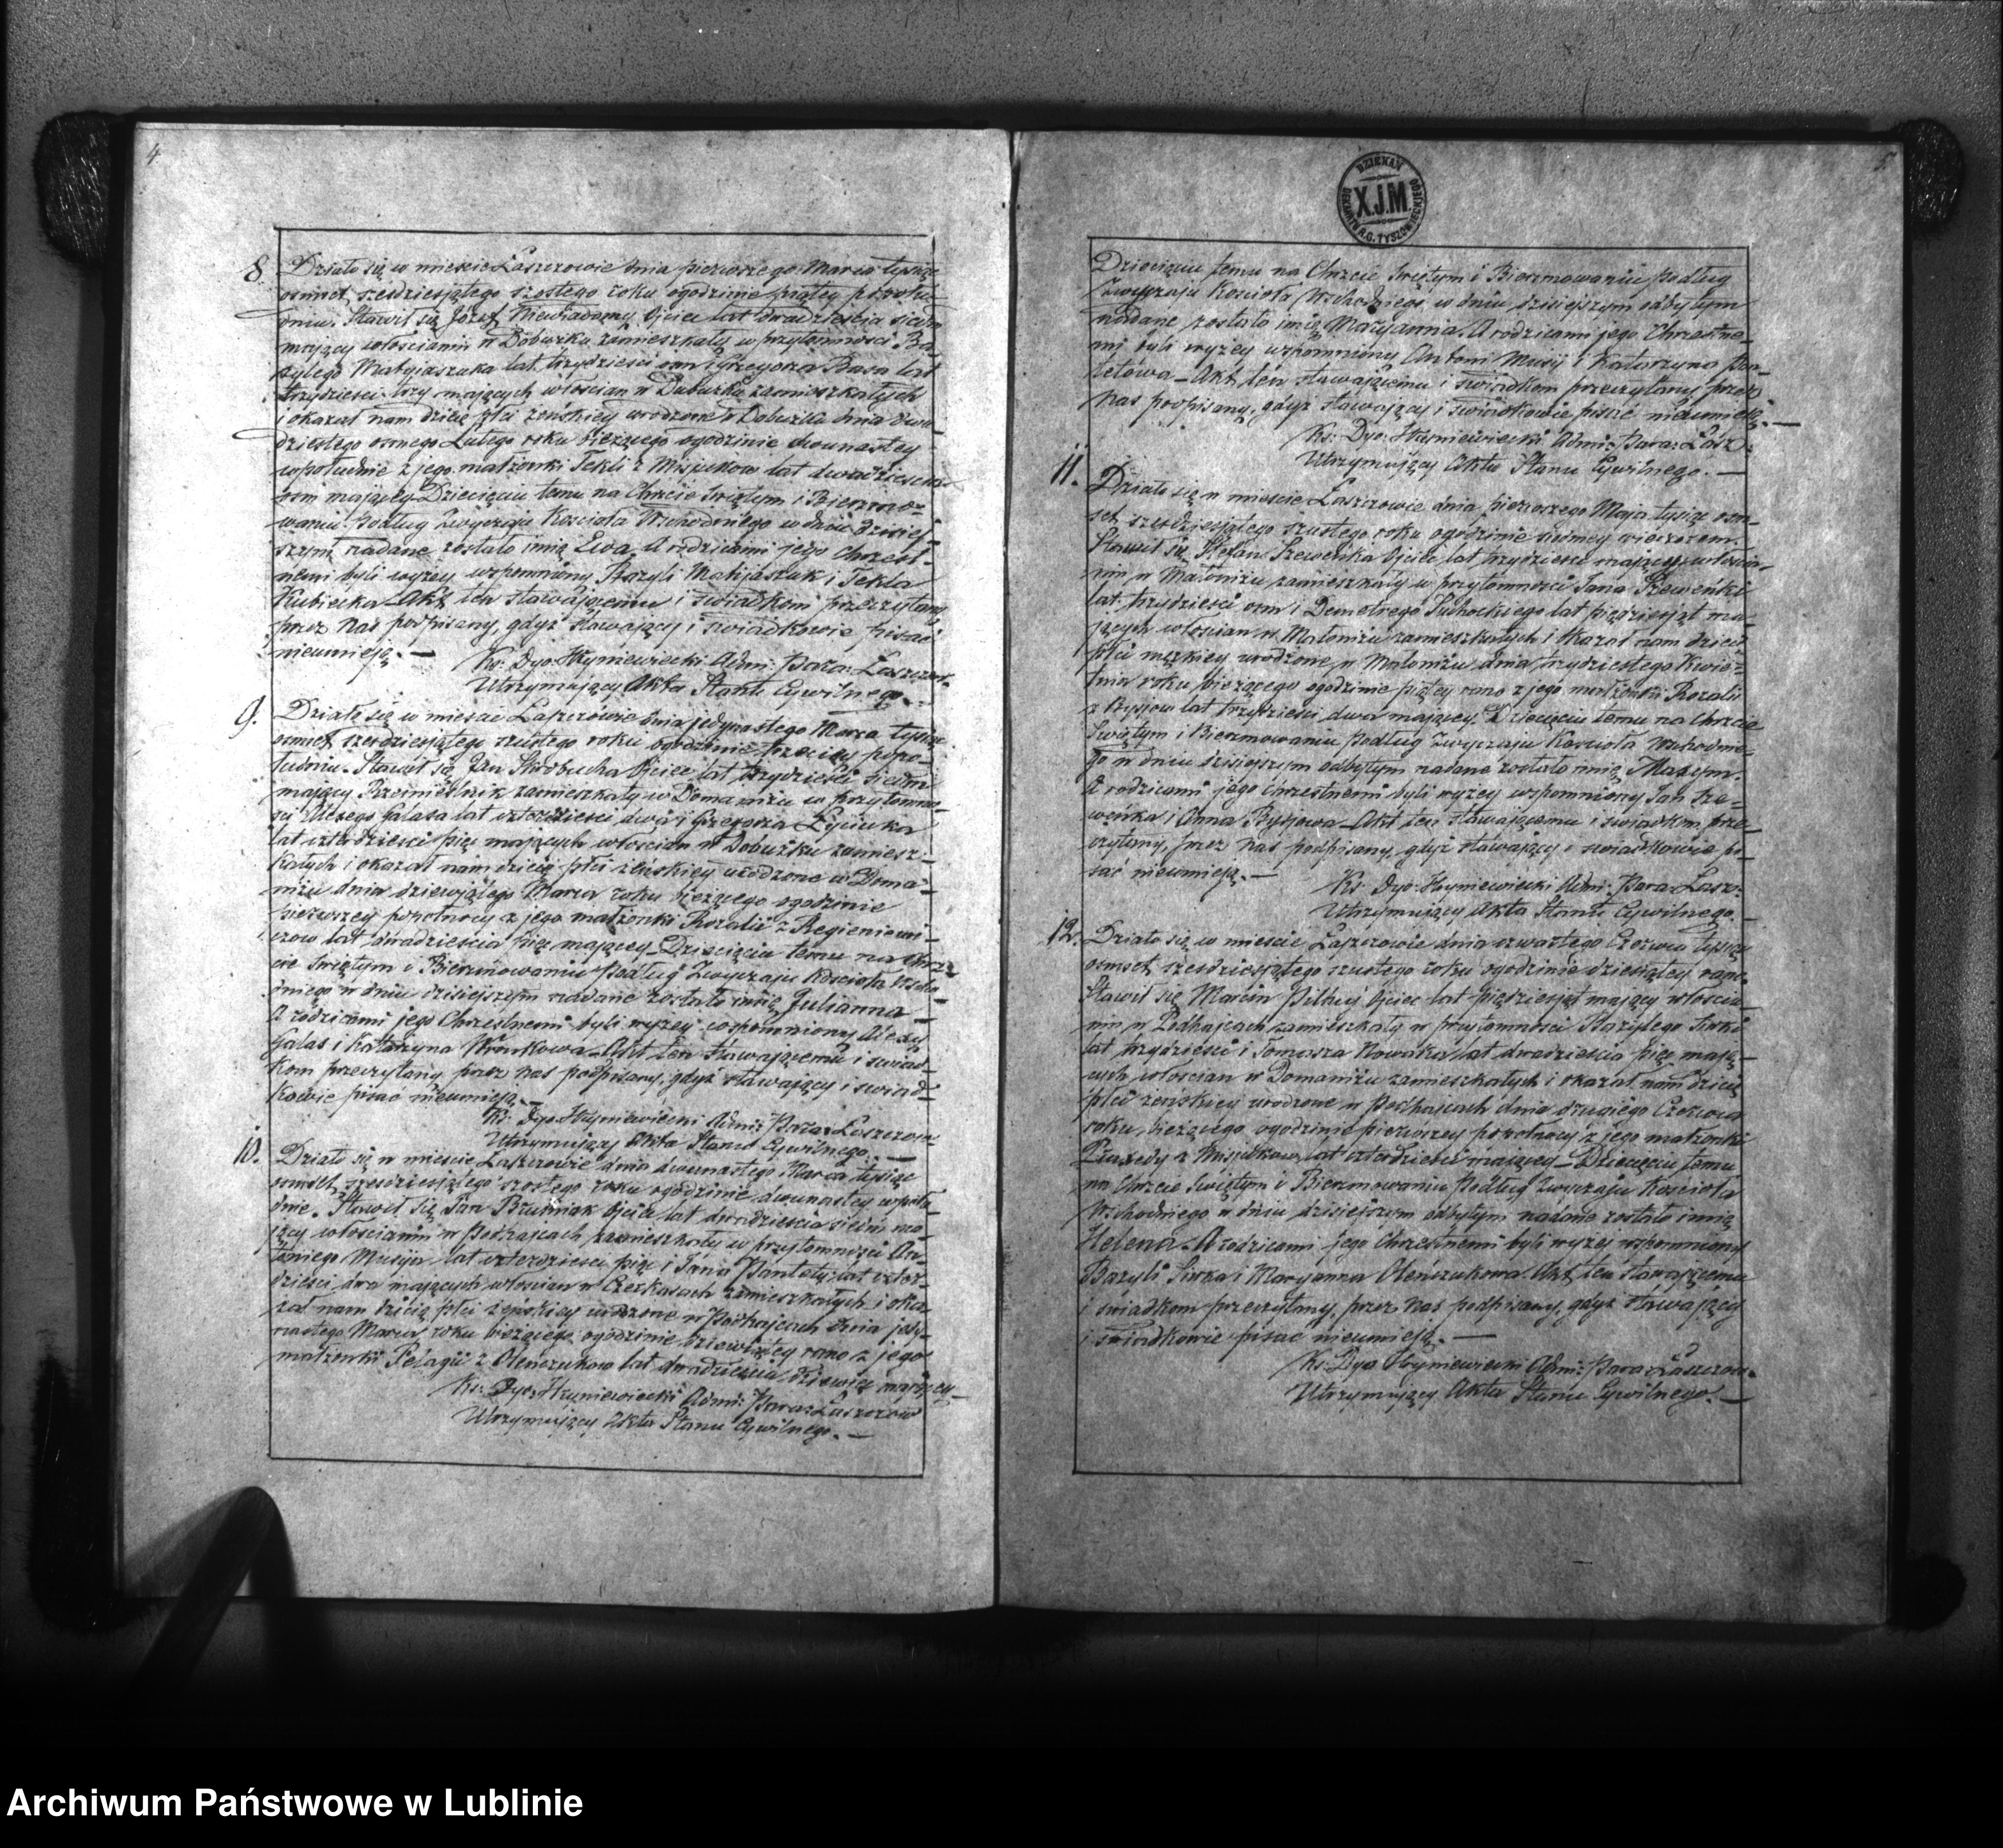 4
8. Działo się w mieście Łaszczowie dnia pierwszego Marca tysiąc
osmset szesdziesiątego szostego roku ogodzinie piątey popołu
dniu. Stawił się Józef Niewiadomy Ojciec lat dwadzieścia siedm
mający włościanin w Dobużku zamieszkały w przytomności Ba-
zylego Matyjaszuka lat trzydzieści osm i Grzegorza Basa lat
trzydzieści trzy mających włościan w Dobużku zamieszkałych
i okazał nam dziecię płci żeńskiey urodzone w Dobużku dnia dwu
dziestego osmego Lutego roku bieżącego ogodzinie dwunastey
wpołudnie z jego małżonki Tekli z Misiuków lat dwadzieścia
osm mającey Dziecięciu temu na Chrzcie Swiętym i Bierzmo-
waniu Podług Zwyczaju Kościoła Wschodniego w dniu dzisiej-
szym nadane zostało imię Ewa. A rodzicami jego Chrzest-
nemi byli wyżey wspomniony Bazyli Matijaszuk i Tekla
Kubiecka Akt ten stawającemu i swiadkom przeczytany
przez Nas podpisany, gdyż stawający i swiadkowie pisać
nieumieją. —
Ks: Dyo: Hryniewiecki Adm: Para: Łaszczow.
Utrzymujący Akta Stanu Cywilnego. -
9. Działo się w mieście Łaszczówie dnia jedynastego Marca tysiąc
osmset szesdziesiątego szustego roku ogodzinie trzeciey popo-
łudniu. Stawił się Jan Skorbucha Ojciec lat trzydzieści siedm
mający Rzemieślnik zamieszkały w Domaniżu w przytomno
ści Alexego Galasa lat czterdzieści dwa i Grzegorza Łyciuka
lat czterdzieści pięć mających włościan w Dobużku zamiesz-
kałych i okazał nam dziecię płci żeńskiey urodzone w Doma-
niżu dnia dziewiątego Marca roku bieżącego ogodzinie
pierwszey popołnocy z jego małżonki Rozalii z Regieniewi-
czow lat dwadzieścia pięć mającey Dziecięciu temu na Chrz-
cie Swiętym i Bierzmowaniu Podług Zwyczaju Kościoła Wscho
dniego w dniu dzisiejszym nadane zostało imię Julianna
A rodzicami jego Chrzestnemi byli wyżey wspomniony Alexy
Galas i Katarzyna Wronkowa Akt ten stawającemu i swiad-
kom przeczytany przez nas podpisany, gdyż stawający i swiad-
kowie pisać nieumieją. —
Ks: Dyo: Hryniewiecki Adm: Para: Łaszczow
Utrzymujący Akta Stanu Cywilnego. —
10. Działo się w mieście Łaszczowie dnia dwunastego Marca tysiąc
osmset szesdziesiątego szostego roku ogodzinie dwunastey wpołu
dnie. Stawił się Jan Bruśniak Ojciec lat dwadzieścia siedm ma
jący włościanin w Podhajcach zamieszkały w przytomności An-
toniego Musija lat czterdzieści pięć i Jana Pantoły lat czter-
dzieści dwa mających włościan w Czerkasach zamieszkałych i oka
zał nam dziecię płci żeńskiey urodzone w Podhajcach dnia jedy-
nastego Marca roku bieżącego ogodzinie dziewiątey rano z jego
małżonki Pelagii z Oleńczukow lat dwadzieścia dziewięć mającey
Ks: Dyo: Hryniewiecki Adm: Para: Łaszczow
Utrzymujący Akta Stanu Cywilnego. —
5
DZIEKAN
X.J.M.
DEKANATU R.G. TYSZOWIECKIEGO
Dziecięciu temu na Chrzcie Swiętym i Bierzmowaniu Podług
Zwyczaju Kościoła Wschodniego w dniu dzisiejszym odbytym
nadane zostało imię Maryanna. A rodzicami jego Chrzestne-
mi byli wyżey wspomniony Antoni Musij i Katarzyna Pan-
tełowa – Akt ten stawającemu i swiadkom przeczytany przez
nas podpisany, gdyż stawający i swiadkowie pisać nieumieją. —
Ks: Dyo: Hryniewiecki Adm: Para: Łasz:
Utrzymujący Akta Stanu Cywilnego. —
11. Działo się w mieście Łaszczowie dnia pierwszego Maja tysiąc osm-
set szesdziesiątego szustego roku ogodzinie siódmey wieczorem.
Stawił się Stefan Szewenka Ojciec lat trzydzieści mający włościa-
nin w Małoniżu zamieszkały w przytomności Jana Szewenki
lat trzydzieści osm i Demetrego Suchockiego lat pięćdziesiąt ma-
jących włościan w Małoniżu zamieszkałych i okazał nam dziecię
płci męzkiey urodzone w Małoniżu dnia trzydziestego Kwie-
tnia roku bieżącego ogodzinie piątey rano z jego małżonki Rozalii
z Rysiow lat trzydzieści dwa mającey. Dziecięciu temu na Chrzcie
Swiętym i Bierzmowaniu Podług Zwyczaju Kościoła Wschodnie-
go w dniu dzisiejszym odbytym nadane zostało imię Maxym.
A rodzicami jego Chrzestnemi byli wyżey wspomniony Jan Sze-
wenka i Anna Rysiowa – Akt ten stawającemu i swiadkom prze-
czytany, przez nas podpisany, gdyż stawający i swiadkowie pi-
sać nieumieją. —
Ks: Dyo: Hryniewiecki Adm: Para: Łasz:
Utrzymujący Akta Stanu Cywilnego. —
12. Działo się w mieście Łaszczowie dnia czwartego Czerwca tysiąc
osmset szesdziesiątego szustego roku ogodzinie dziesiątey rano.
Stawił się Marcin Pilhuj Ojciec lat pięćdziesiąt mający włościa-
nin w Podhajcach zamieszkały w przytomności Bazylego Sirki
lat trzydzieści i Tomasza Nowaka lat dwadzieścia pięć mają-
cych włościan w Domaniżu zamieszkałych i okazał nam dziecię
płci żeńskiey urodzone w Podhajcach dnia drugiego Czerwca
roku bieżącego ogodzinie pierwszey popołnocy z jego małżonki
Praxedy z Misiukow lat czterdzieści mającey – Dziecięciu temu
na Chrzcie Swiętym i Bierzmowaniu Podług Zwyczaju Kościoła
Wschodniego w dniu dzisiejszym odbytym nadane zostało imię
Helena. A rodzicami jego Chrzestnemi byli wyżey wspomniony
Bazyli Sirka i Maryanna Oleńczukowa. Akt ten stawającemu
i swiadkom przeczytany, przez Nas podpisany, gdyż stawający
i swiadkowie pisać nieumieją. —
Ks: Dyo: Hryniewiecki Adm: Para: Łaszczow.
Utrzymujący Akta Stanu Cywilnego. —
Archiwum Państwowe w Lublinie